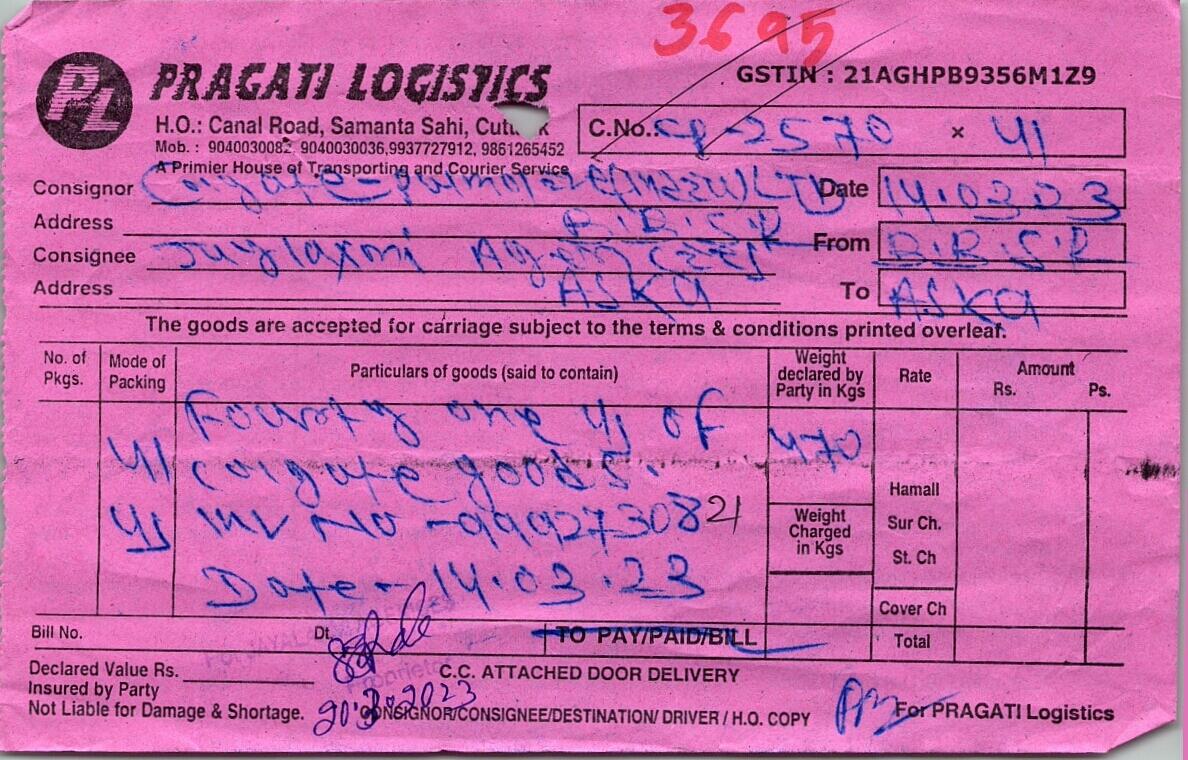 3695
PL
PRAGATI LOGISTICS
GSTIN : 21AGHPB9356M1Z9
H.O.: Canal Road, Samanta Sahi,
C.No.: CP-2570 x 41
Mob. : 9040030082, 9040030036,9937727912, 9861265452
A Primier House of Transporting and Courier Service
Consignor Colgate-palmolive LTD Date 14.03.23
Address B.B.S.R From B.B.S.R
Consignee Juglaxmi Agencies
Address ASKA To ASKA
The goods are accepted for carriage subject to the terms & conditions printed overleaf.
No. of Pkgs. Mode of Packing Particulars of goods (said to contain) Weight declared by Party in Kgs Rate Amount Rs. Ps.
Fourty one 41 of
41 Colgate goods. 470
Hamall
41 INV NO - 9992730821 Weight Charged in Kgs Sur Ch.
St. Ch
Date - 14.03.23
Cover Ch
Bill No. Dt. TO PAY/PAID/BILL Total
Proprietor
Declared Value Rs. C.C. ATTACHED DOOR DELIVERY
Insured by Party
Not Liable for Damage & Shortage. 20.3.2023 CONSIGNOR/CONSIGNEE/DESTINATION/ DRIVER / H.O. COPY For PRAGATI Logistics